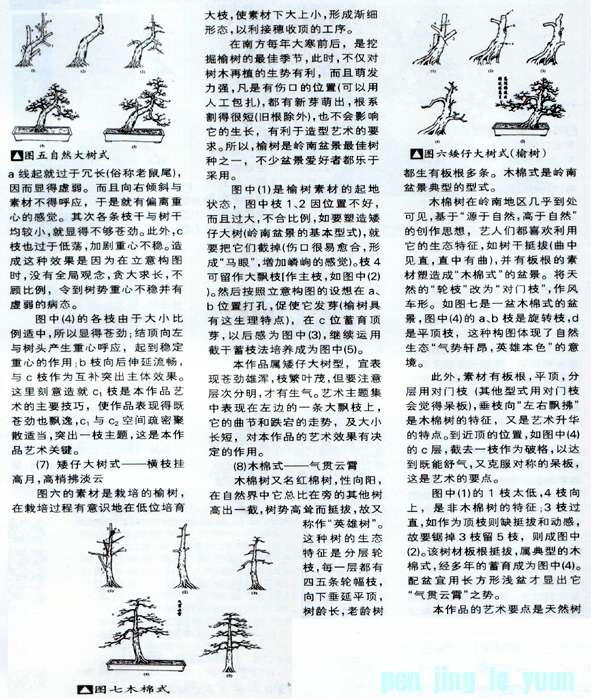 ▲图五自然大树式
a线起就过于冗长(俗称老鼠尾),
因而显得虚弱。而且向右倾斜与
素材不得呼应，于是就有偏离重
心的感觉。其次各条枝干与树干
均较小,就显得不够苍劲。此外,c
枝也过于低荡,加剧重心不稳。造
成这种效果是因为在立意构图
时,没有全局观念,贪大求长,不
顾比例，令到树势重心不稳并有
虚弱的病态。
图中(4)的各枝由于大小比
例适中,所以显得苍劲;结顶向左
与树头产生重心呼应，起到稳定
重心的作用;b枝向后伸延流畅,
与c枝作为互补突出主体效果。
这里刻意造就c₁枝是本作品艺
术的主要技巧，使作品表现得既
苍劲也飘逸,c₁与c₂空间疏密聚
散适当,突出一枝主题,这是本作
品艺术关键。
(7) 矮仔大树式——横枝挂
高月,高梢拂淡云
图六的素材是栽培的榆树,
在栽培过程有意识地在低位培育
大枝,使素材下大上小,形成渐细
形态,以利接穗收顶的工序。
在南方每年大寒前后，是挖
掘榆树的最佳季节,此时,不仅对
树木再植的生势有利，而且萌发
力强,凡是有伤口的位置(可以用
人工包扎),都有新芽萌出,根系
割得很短(旧根除外),也不会影响
它的生长，有利于造型艺术的要
求。所以,榆树是岭南盆景最佳树
种之一，不少盆景爱好者都乐于
采用。
图中(1)是榆树素材的起地
状态，图中枝1、2因位置不好,
而且过大,不合比例,如要塑造矮
仔大树(岭南盆景的基本型式),就
要把它们截掉(伤口很易愈合,形
成“马眼”,增加嶙峋的感觉)。枝4
可留作大飘枝(作主枝,如图中(2)
)。然后按照立意构图的设想在a、
b位置打孔,促使它发芽(榆树具
有这生理特点)，在c位蓄育顶
芽,以后感为图中(3),继续运用
截干蓄枝法培养成为图中(5)。
本作品属矮仔大树型，宜表
现苍劲雄浑,枝繁叶茂,但要注意
层次分明,才有生气。艺术主题集
中表现在左边的一条大飘枝上,
它的曲节和跌宕的走势，及大小
长短，对本作品的艺术效果有决
定的作用。
(8)木棉式——气贯云霄
木棉树又名红棉树,性向阳,
在自然界中它总比在旁的其他树
高出一截,树势高耸而挺拔,故又
称作“英雄树”。
这种树的生态
特征是分层轮
枝,每一层都有
四五条轮幅枝,
向下垂延平顶,
树龄长,老龄树
▲图六矮仔大树式(榆树)
都生有板根多条。木棉式是岭南
盆景典型的型式。
木棉树在岭南地区几乎到处
可见,基于“源于自然,高于自然”
的创作思想，艺人们都喜欢利用
它的生态特征,如树干挺拔(曲中
见直,直中有曲)，并有板根的素
材塑造成“木棉式”的盆景。将天
然的“轮枝”改为“对门枝”,作风
车形。如图七是一盆木棉式的盆
景,图中(4)的a、b枝是旋转枝,d
是平顶枝，这种构图体现了自然
生态“气势轩昂,英雄本色”的意
境。
此外,素材有板根,平顶,分
层用对门枝 (其他型式用对门枝
会觉得呆板),垂枝向“左右飘拂”
是木棉树的特征，又是艺术升华
的特点。到近顶的位置,如图中(4)
的c层,截去一枝作为破格,以达
到既能舒气,又克服对称的呆板,
这是艺术的要点。
图中(1)的1枝太低,4枝向
上，是非木棉树的特征;3枝过
直,如作为顶枝则缺挺拔和动感,
故要锯掉3枝留5枝，则成图中
(2)。该树材板根挺拔,属典型的木
棉式,经多年的蓄育成为图中(4)。
配盆宜用长方形浅盆才显出它
“气贯云霄”之势。
本作品的艺术要点是天然树
▲图七木棉式
pen jing le yuan